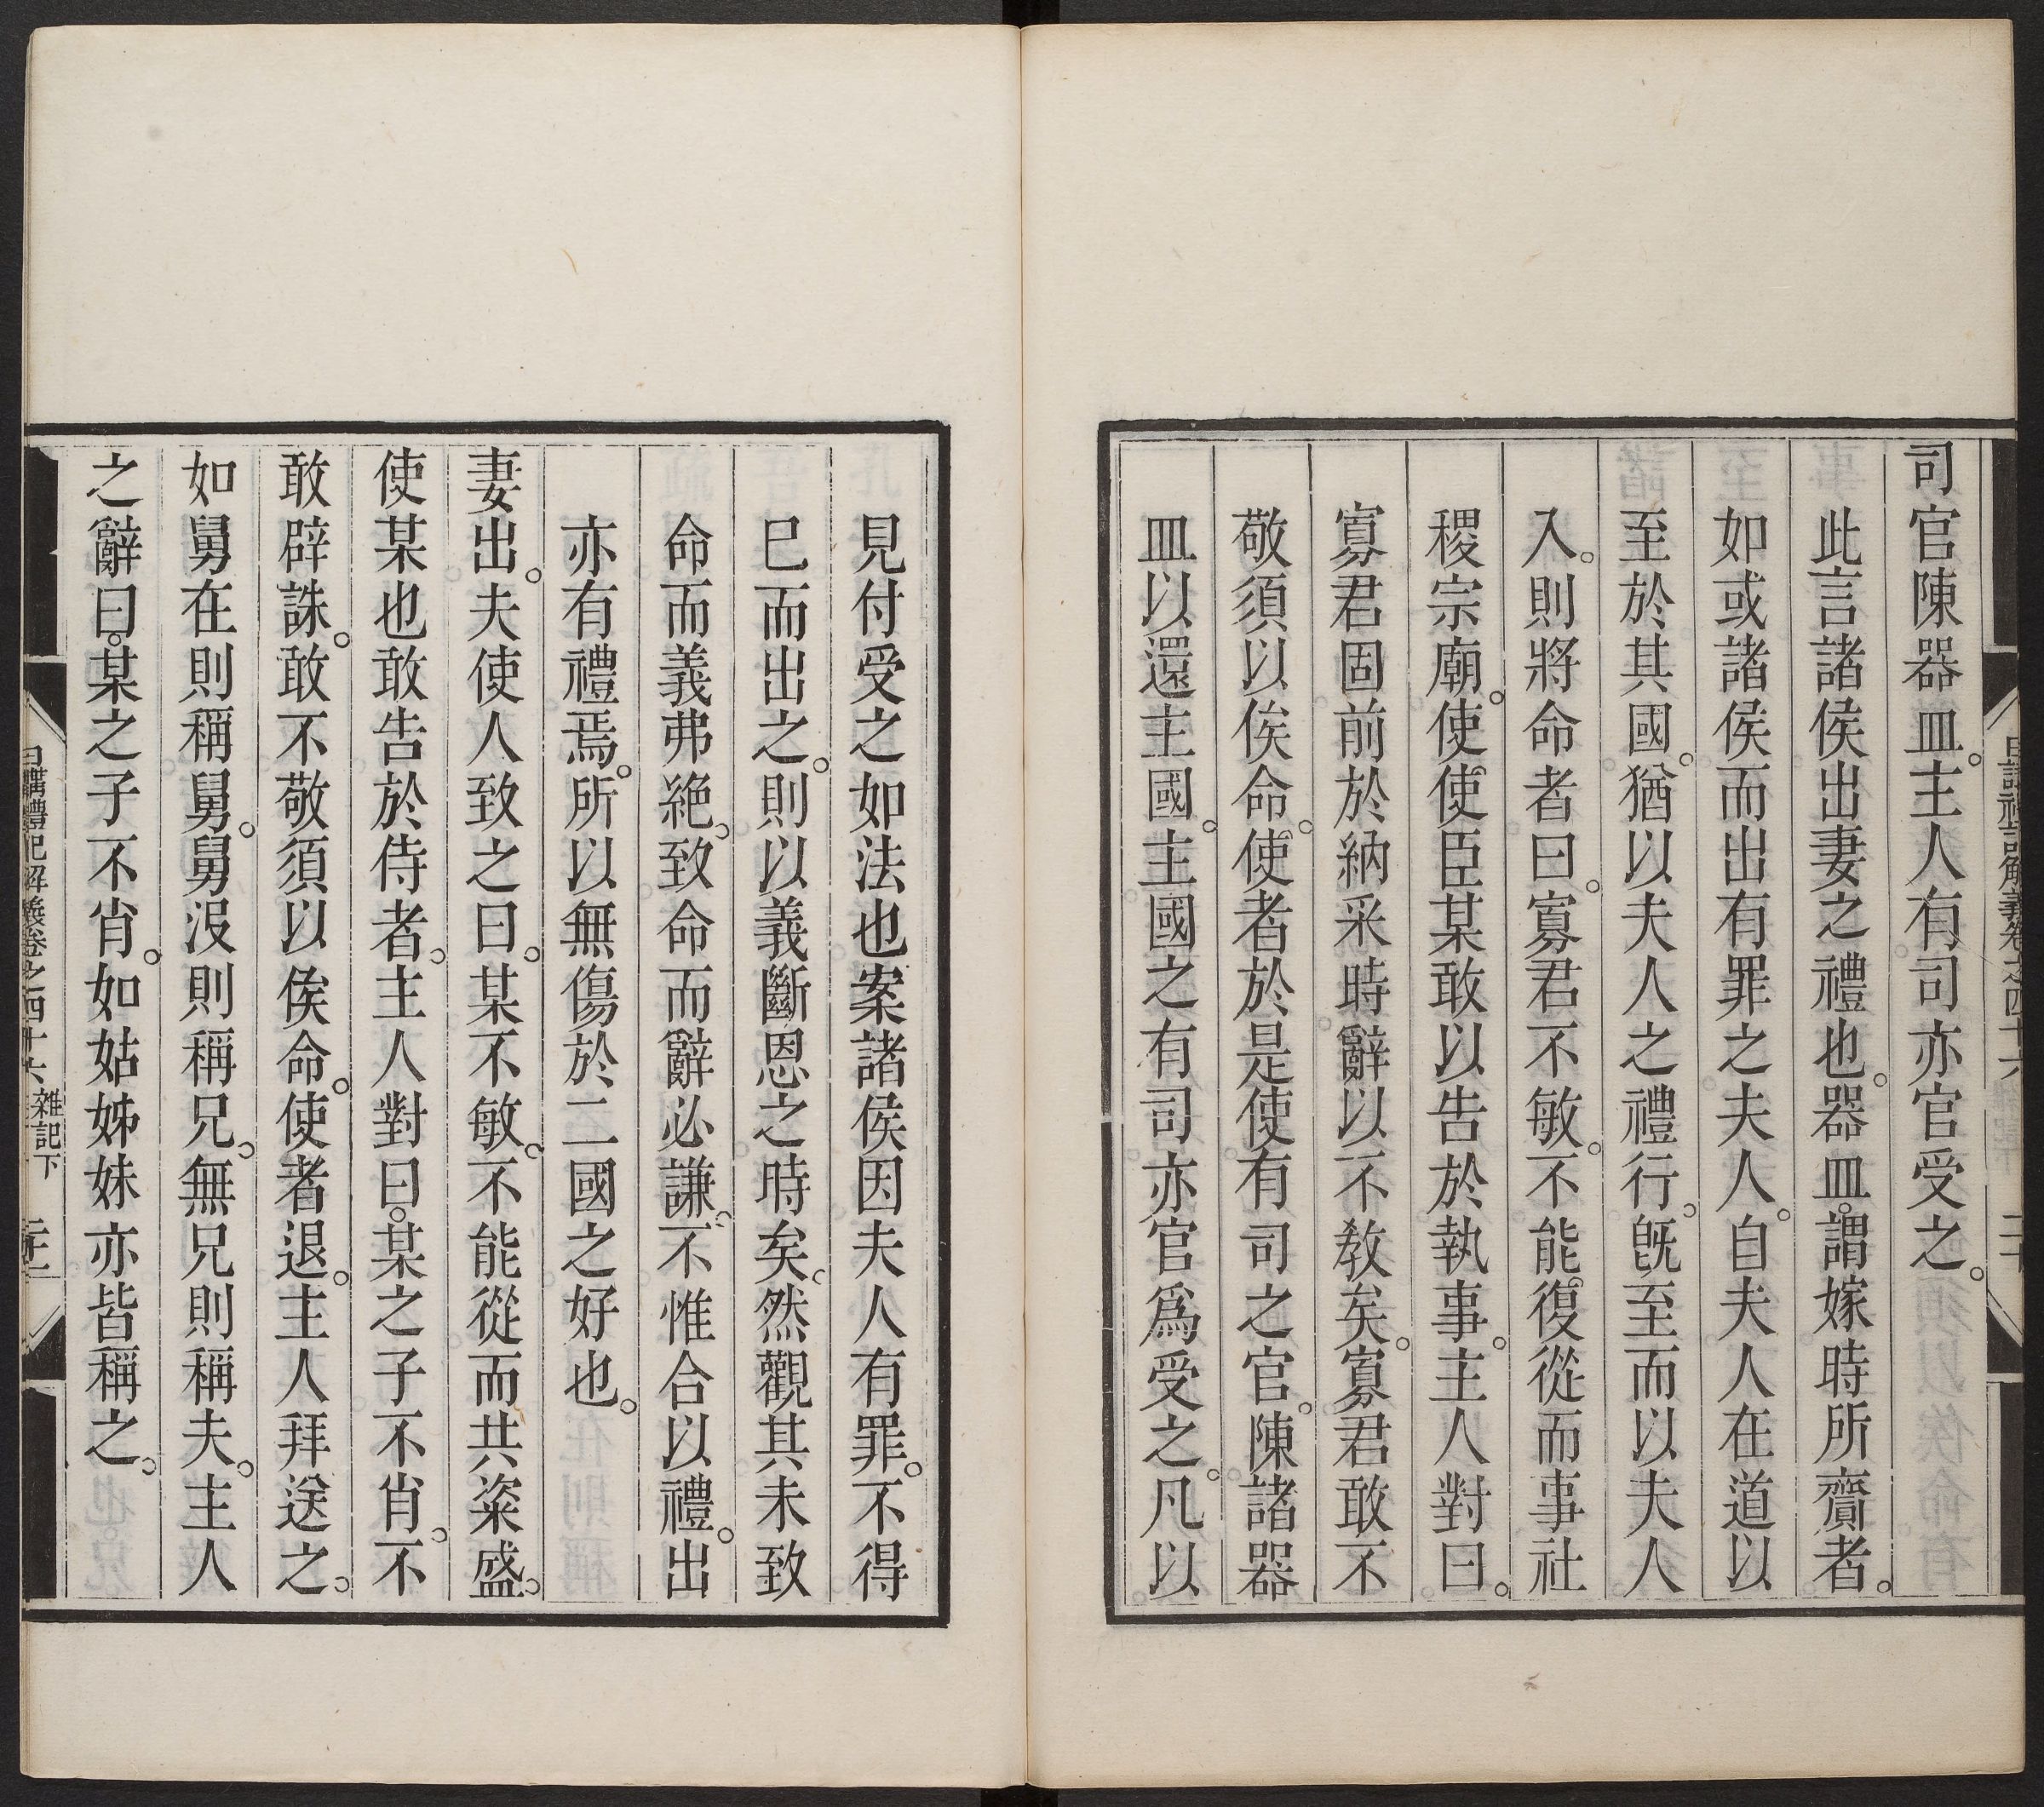 司官陳器皿。主人有司亦官受之。
此言諸侯出妻之禮也。器皿。謂嫁時所齎者。
如或諸侯而出有罪之夫人。自夫人在道以
至於其國。猶以夫人之禮行。旣至而以夫人
入。則將命者曰。寡君不敏。不能。復從而事社
稷宗廟。使。使臣某敢以告於執事。主人對曰。
寡君固前於納采時辭以不敎矣。寡君敢不
敬須以俟命。使者於是使有司之官。陳諸器
皿以還主國。主國之有司亦官爲受之。凡以
見付受之如法也案諸侯因夫人有罪。不得
巳而出之。則以義斷恩之時矣。然觀其未致
命而義弗絶。致命而辭必謙。不惟合以禮。出
亦有禮焉。所以無傷於二國之好也。
妻出。夫使人致之曰。某不敏。不能從而共粢盛。
使某也敢告於侍者。主人對曰。某之子不肖。不
敢辟誅。敢不敬須以俟命。使者退。主人拜送之。
如舅在則稱舅。舅沒則稱兄。無兄則稱夫。主人
之辭曰。某之子不肖。如姑姊妹亦皆稱之。
日講禮記解義卷之四十六 雜記下